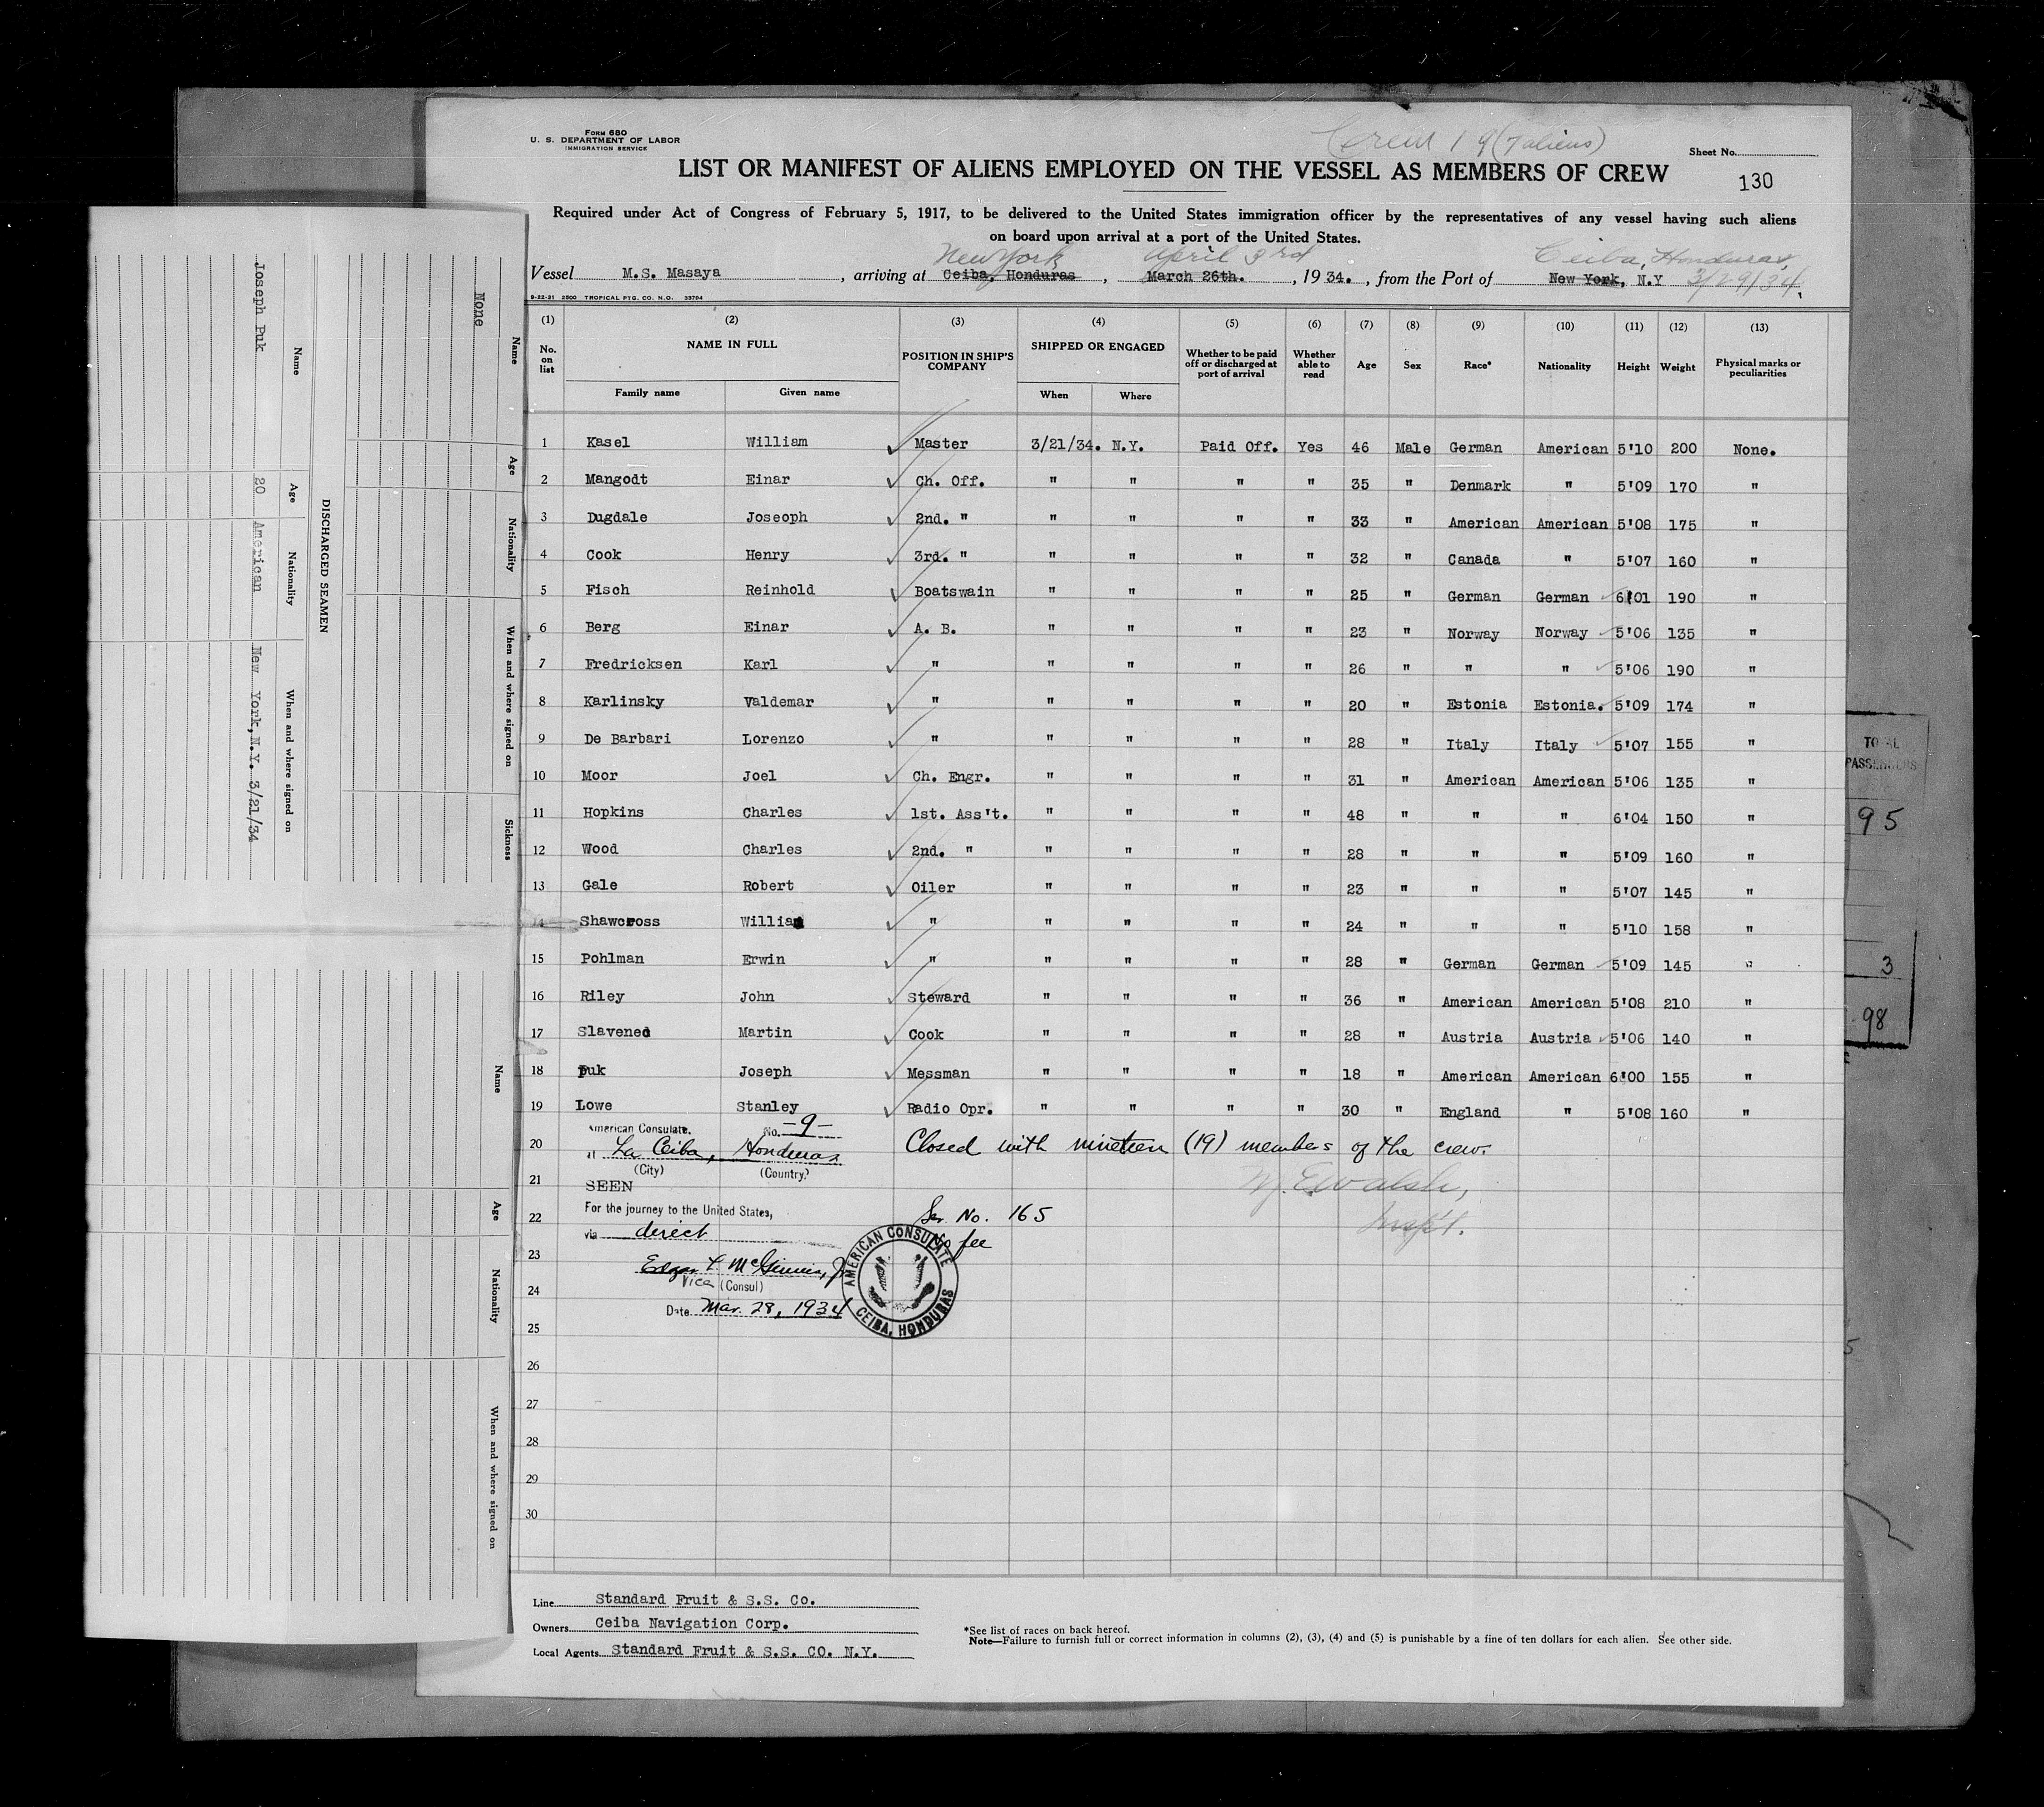 FORM 680
U. S. DEPARTMENT OF LABOR
IMMIGRATION SERVICE
Crew 19 (7 aliens)
Sheet No.
LIST OR MANIFEST OF ALIENS EMPLOYED ON THE VESSEL AS MEMBERS OF CREW
130
Required under Act of Congress of February 5, 1917, to be delivered to the United States immigration officer by the representatives of any vessel having such aliens
on board upon arrival at a port of the United States.
New York April 3rd Ceiba, Honduras
Vessel M.S. Masaya, arriving at Ceiba, Honduras, March 26th., 1934., from the Port of New York, N.Y 3/29/34
9-22-31 2500 TROPICAL PTG. CO. N.O. 33794
(1) (2) (3) (4) (5) (6) (7) (8) (9) (10) (11) (12) (13)
No. on list NAME IN FULL POSITION IN SHIP'S COMPANY SHIPPED OR ENGAGED Whether to be paid off or discharged at port of arrival Whether able to read Age Sex Race* Nationality Height Weight Physical marks or peculiarities
Family name Given name When Where
1 Kasel William Master 3/21/34. N.Y. Paid Off. Yes 46 Male German American 5'10 200 None.
2 Mangodt Einar Ch. Off. " " " " 35 " Denmark " 5'09 170 "
3 Dugdale Joseoph 2nd. " " " " " 33 " American American 5'08 175 "
4 Cook Henry 3rd. " " " " " 32 " Canada " 5'07 160 "
5 Fisch Reinhold Boatswain " " " " 25 " German German 6'01 190 "
6 Berg Einar A. B. " " " " 23 " Norway Norway 5'06 135 "
7 Fredricksen Karl " " " " " 26 " " " 5'06 190 "
8 Karlinsky Valdemar " " " " " 20 " Estonia Estonia. 5'09 174 "
9 De Barbari Lorenzo " " " " " 28 " Italy Italy 5'07 155 "
10 Moor Joel Ch. Engr. " " " " 31 " American American 5'06 135 "
11 Hopkins Charles 1st. Ass't. " " " " 48 " " " 6'04 150 "
12 Wood Charles 2nd. " " " " " 28 " " " 5'09 160 "
13 Gale Robert Oiler " " " " 23 " " " 5'07 145 "
14 Shawcross William " " " " " 24 " " " 5'10 158 "
15 Pohlman Erwin " " " " " 28 " German German 5'09 145 "
16 Riley John Steward " " " " 36 " American American 5'08 210 "
17 Slavened Martin Cook " " " " 28 " Austria Austria 5'06 140 "
18 Puk Joseph Messman " " " " 18 " American American 6'00 155 "
19 Lowe Stanley Radio Opr. " " " " 30 " England " 5'08 160 "
American Consulate. No. -9-
20 La Ceiba, Honduras Closed with nineteen (19) members of the crew.
(City) (Country)
21 SEEN Walsh,
For the journey to the United States,
22 Ser. No. 165 Insp't.
via direct No fee
23
Edgar McGinnis, Jr
Vice (Consul)
24
Date Mar. 28, 1934
AMERICAN CONSULATE
CEIBA, HONDURAS
25
26
27
28
29
30
Line Standard Fruit & S.S. Co.
Owners Ceiba Navigation Corp.
Local Agents Standard Fruit & S.S. CO. N.Y.
*See list of races on back hereof.
Note—Failure to furnish full or correct information in columns (2), (3), (4) and (5) is punishable by a fine of ten dollars for each alien. See other side.
DISCHARGED SEAMEN
Name Age Nationality When and where signed on
Joseph Puk 20 American New York, N.Y. 3/21/34
Name Age Nationality When and where signed on Sickness
None
Name Age Nationality When and where signed on
TOTAL
PASSENGERS
95
3
98